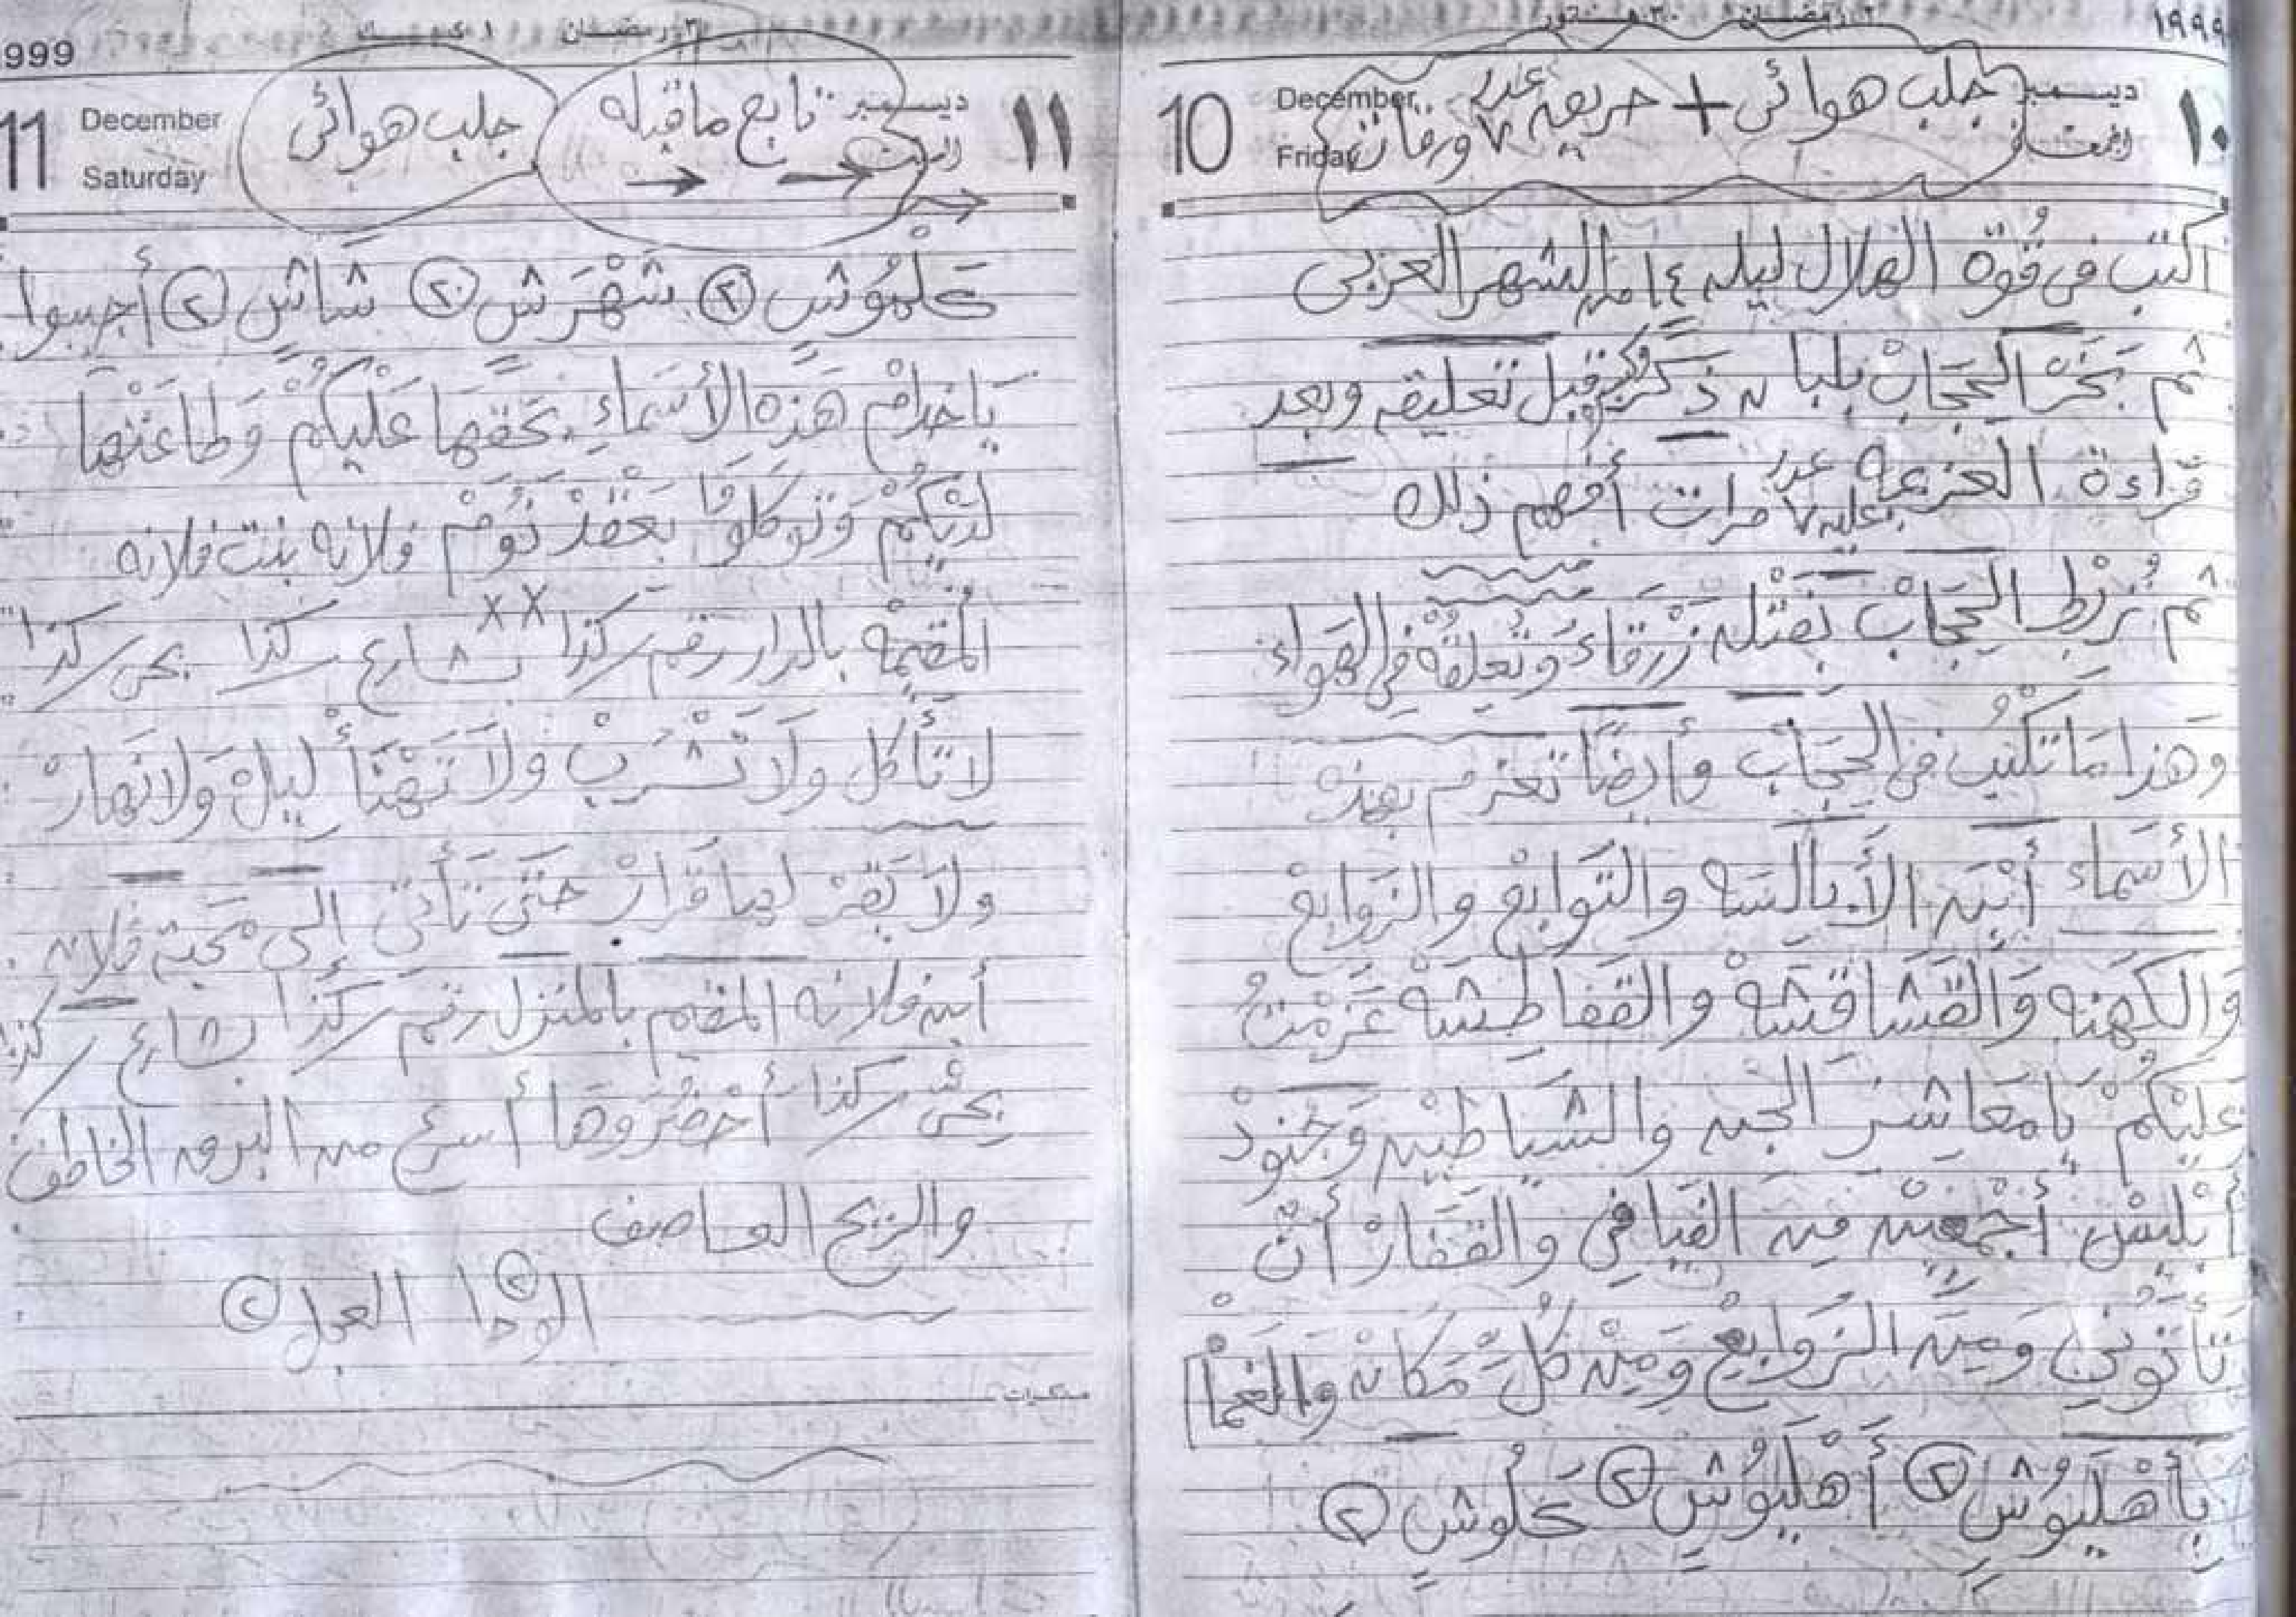 ١٩٩٩
١٠
ديسمبر
الجمعة
December
Friday
10
جلب هوائى + حريمه عدد ٧ ورقات
اكتب فى قوة الهلال ليله ١٤ من الشهر العربى
ثم بَخّر الحجَابْ بلبان ذكر قبل تعليقه وبعد
قراءة العزيمه عليه عدد ٧ مرات أفهم ذلك
ثم تُربْط الحِجَابْ بفَتْله زَرْقاء وتعلقهُ فى الهَواء
وهذا مَا تكْتُب فى الحجَابْ وأيضًا تعزم بهذه
الأسَماء أيْنَ الأَبَالسَه والتَّوابْع والزَّوابعْ
وَالكَهَنه وَالقَشَاقشَهْ والقَفَاطِشَهْ عَزَمْتُ
عَليْكُمْ يَامَعَاشِرَ الجِن والشَّيَاطِيْن وَجُنودْ
أبْليسْ أجْمَعْينَ مِنَ الفَيَافِى والقَفَارْ أنْ
تَأتُونِى وَمِنَ الزَّوابِعْ ومِنْ كُلّ مَكَان وَالغمَامْ
بِأهْلَيُوشٍ ٢ أَهْلَيُوشٍ ٢ كَلُوشٍ ٢
1999
٣ رمضان
١ كيهك
11
December
Saturday
ديسمبر
السبت
١١
تابع ماقبله
جلب هوائى
كَلْمُوشٍ ٢ شَهْرَشٍ ٢ شَاشٍ ٢ أجيبوا
يَاخدامْ هَذه الأسَماءِ بحَقهَا عَليْكُمْ وَطاعَتْهَا
لدَيْكُمْ وَتوَكلوْا بعَقْدْ نَوْمْ فلانه بنت فلانه
المُقيمْه بالدار رقم كذا ×× بشارع كذا بحى كذا
لا تَأكل ولاَ تشْرَبْ وَلاَ تَهْنَأ ليْل وَلا نَهارْ
ولاَ يَقر لها قَرارْ حَتَّى تأتى الى محَبة فلان
أبن فلانه المقيم بالمنزل رقم كذا بشارع كذا
بحى كذا أحْضُرُوهَا أسرع من البرق الخاطف
والريح العاصف
الوحا ٢ العجل ٢